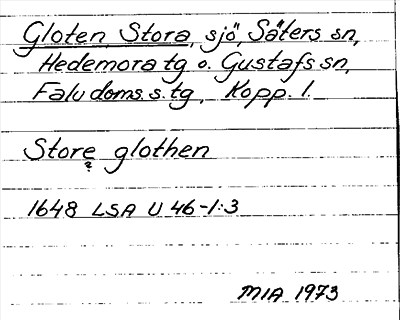 Gloten, Stora, sjö, Säters sn,
Hedemora tg o. Gustafs sn,
Falu doms. s. tg, Kopp. l.
Store glothen
?
1648 LSA U 46-1:3
MIA 1973